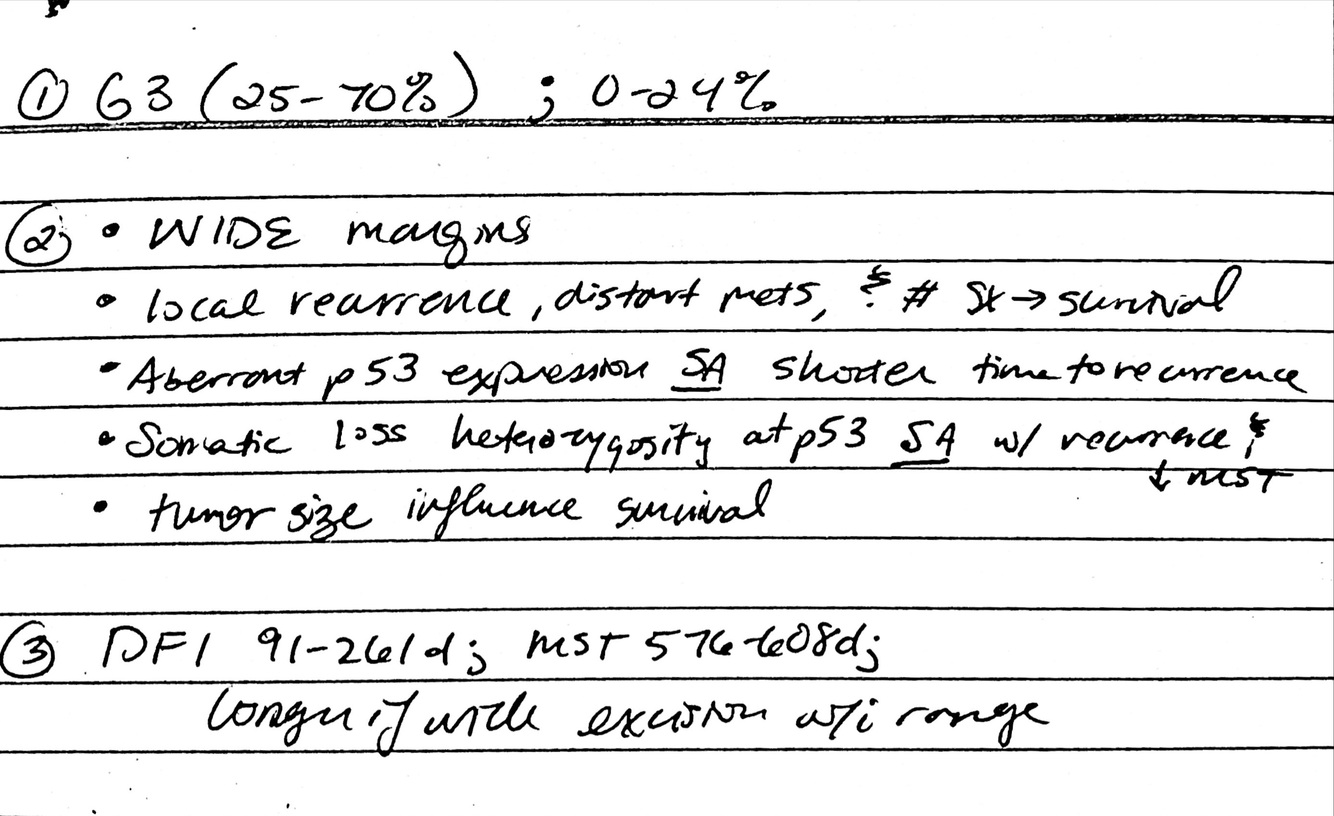 ① G3 (25-70%) ; 0-24%
② • WIDE margins
• local recurrence, distant mets, & # Sx → survival
• Aberrant p53 expression SA shorter time to recurrence
• Somatic loss heterozygosity at p53 SA w/ recurrence &
↓ MST
• tumor size influence survival
③ DFI 91-261d; MST 576-608d;
longer if wide excision w/i range